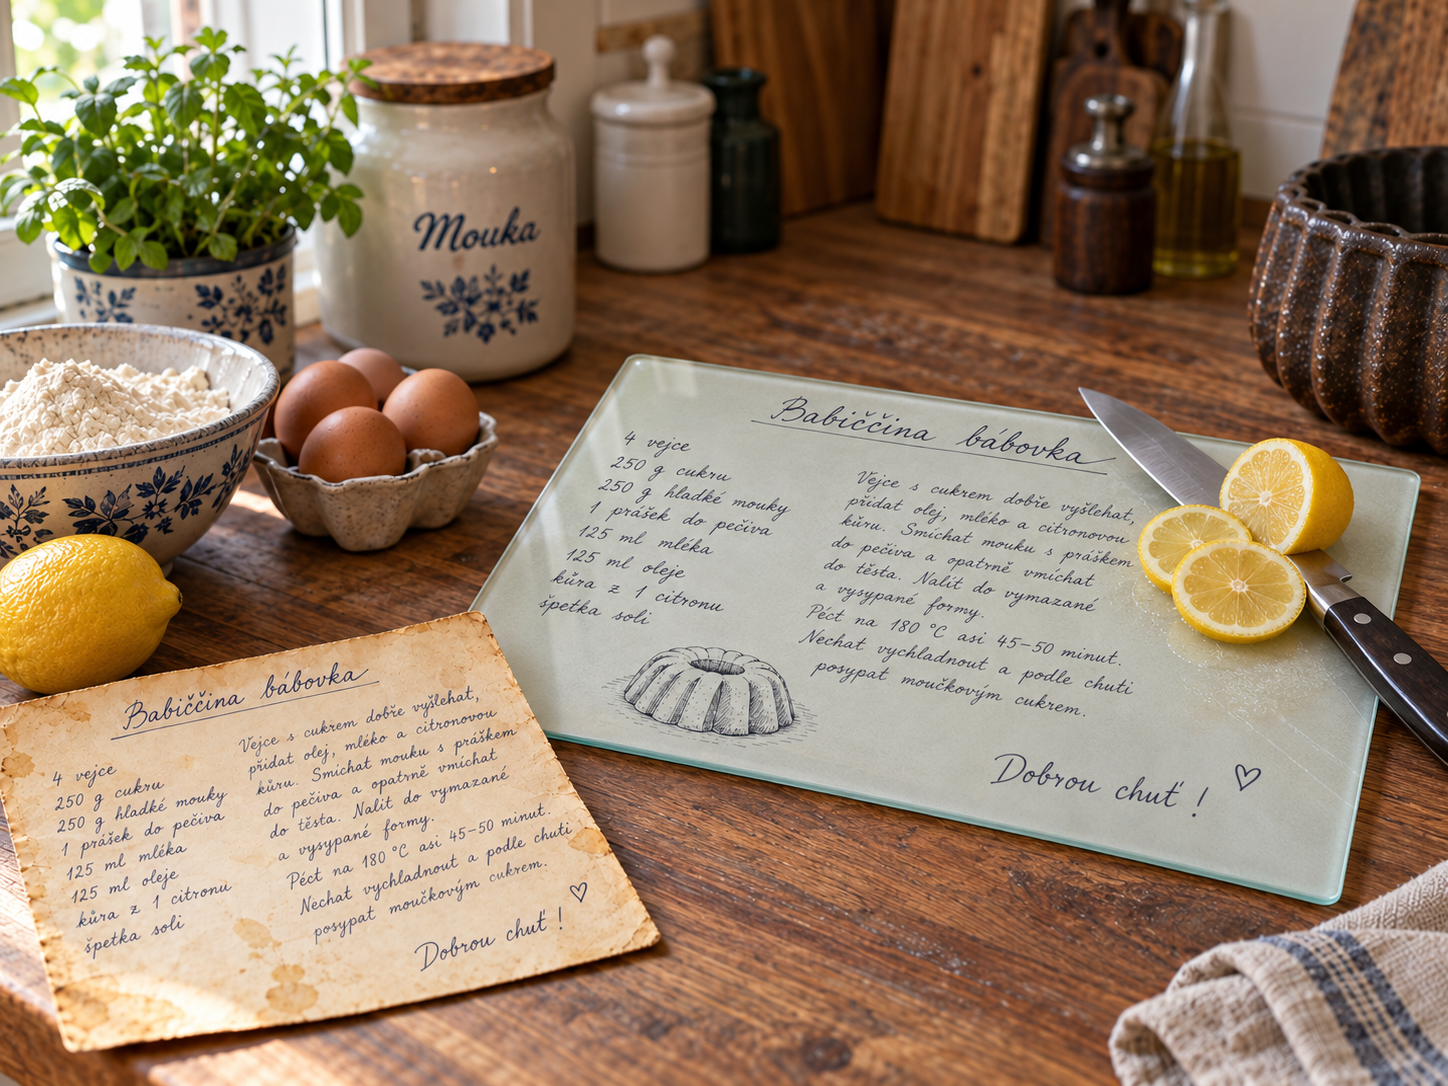 Mouka
Babiččina bábovka
4 vejce
250 g cukru
250 g hladké mouky
1 prášek do pečiva
125 ml mléka
125 ml oleje
kůra z 1 citronu
špetka soli
Vejce s cukrem dobře vyšlehat,
přidat olej, mléko a citronovou
kůru. Smíchat mouku s práškem
do pečiva a opatrně vmíchat
do těsta. Nalít do vymazané
a vysypané formy.
Péct na 180 °C asi 45–50 minut.
Nechat vychladnout a podle chuti
posypat moučkovým cukrem.
Dobrou chuť !
Babiččina bábovka
4 vejce
250 g cukru
250 g hladké mouky
1 prášek do pečiva
125 ml mléka
125 ml oleje
kůra z 1 citronu
špetka soli
Vejce s cukrem dobře vyšlehat,
přidat olej, mléko a citronovou
kůru. Smíchat mouku s práškem
do pečiva a opatrně vmíchat
do těsta. Nalít do vymazané
a vysypané formy.
Péct na 180 °C asi 45–50 minut.
Nechat vychladnout a podle chuti
posypat moučkovým cukrem.
Dobrou chuť !